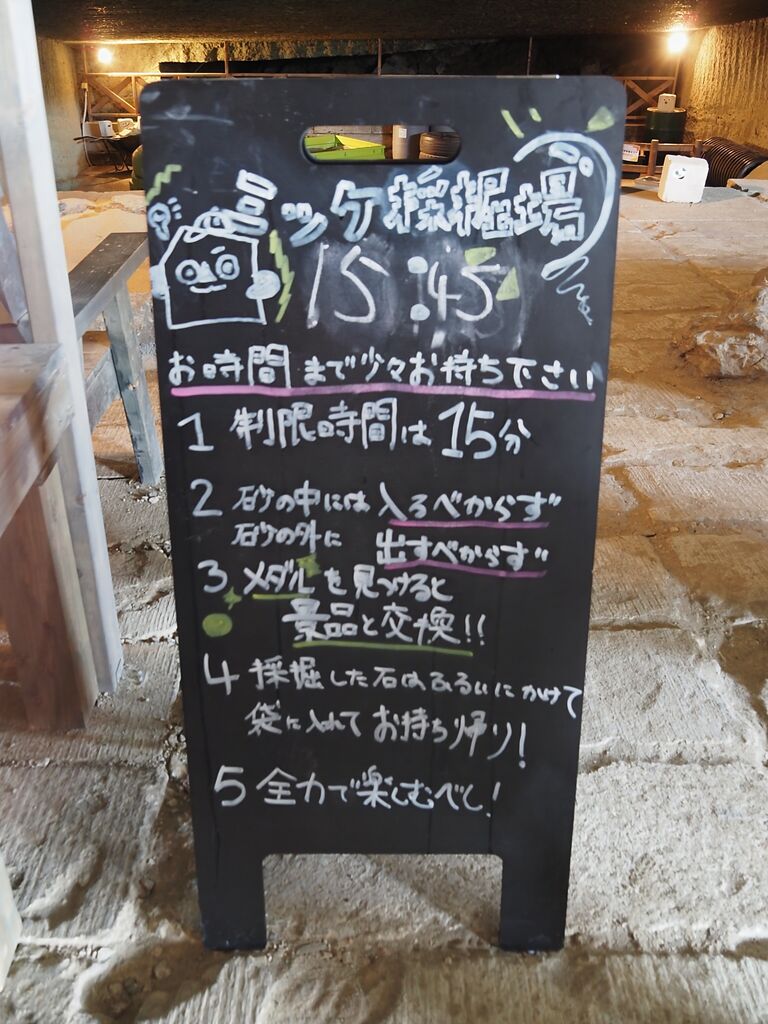 ミッケ採掘場
15:45
お時間まで少々お持ち下さい
1 制限時間は15分
2 砂の中には入るべからず
砂の外に 出すべからず
3 メダルを見つけると
景品と交換!!
4 採掘した石はふるいにかけて
袋に入れてお持ち帰り!
5 全力で楽しむべし!